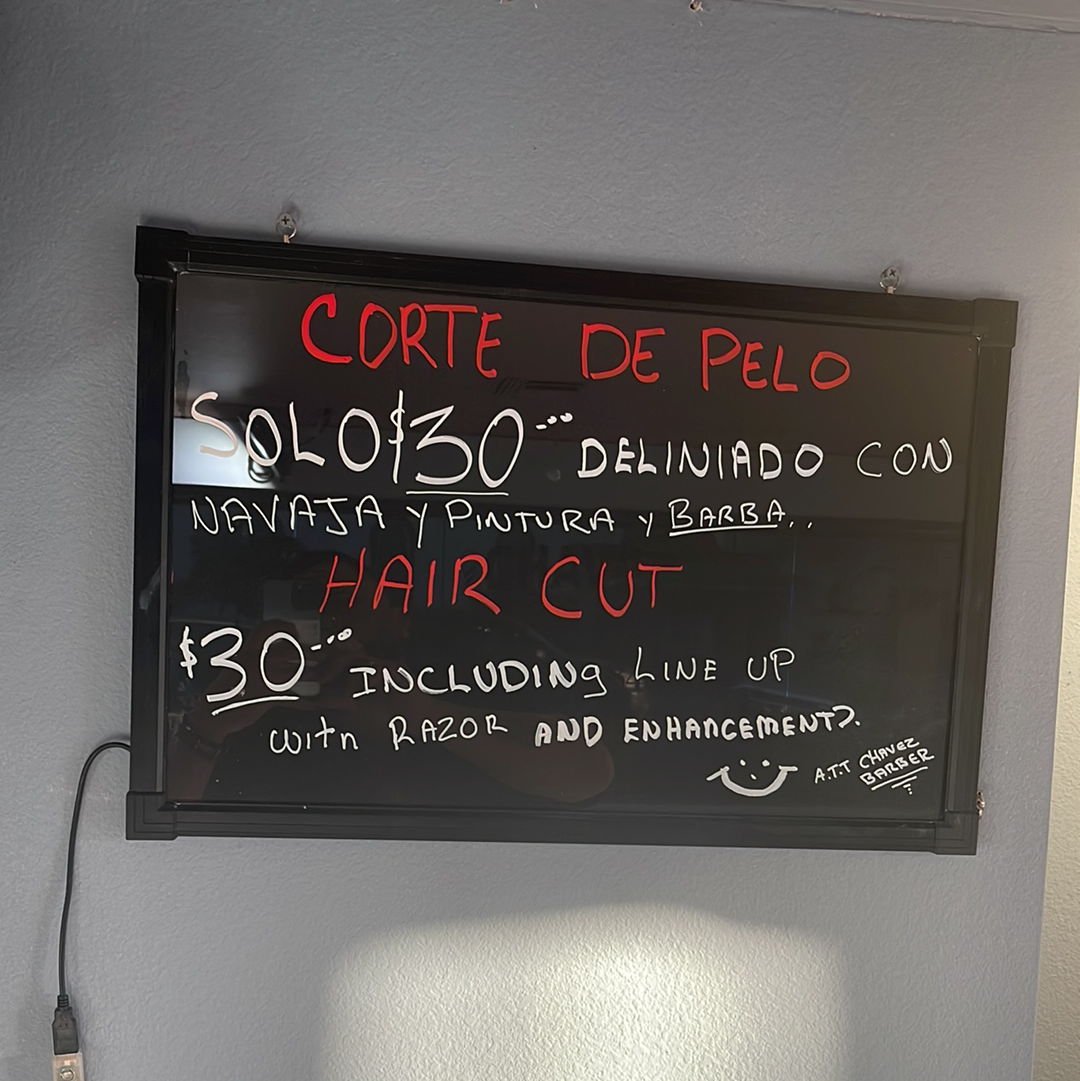 CORTE DE PELO
SOLO $30... DELINIADO CON
NAVAJA Y PINTURA Y BARBA..
HAIR CUT
$30... INCLUDING LINE UP
with RAZOR AND ENHANCEMENTS.
A.T.T CHAVEZ
BARBER